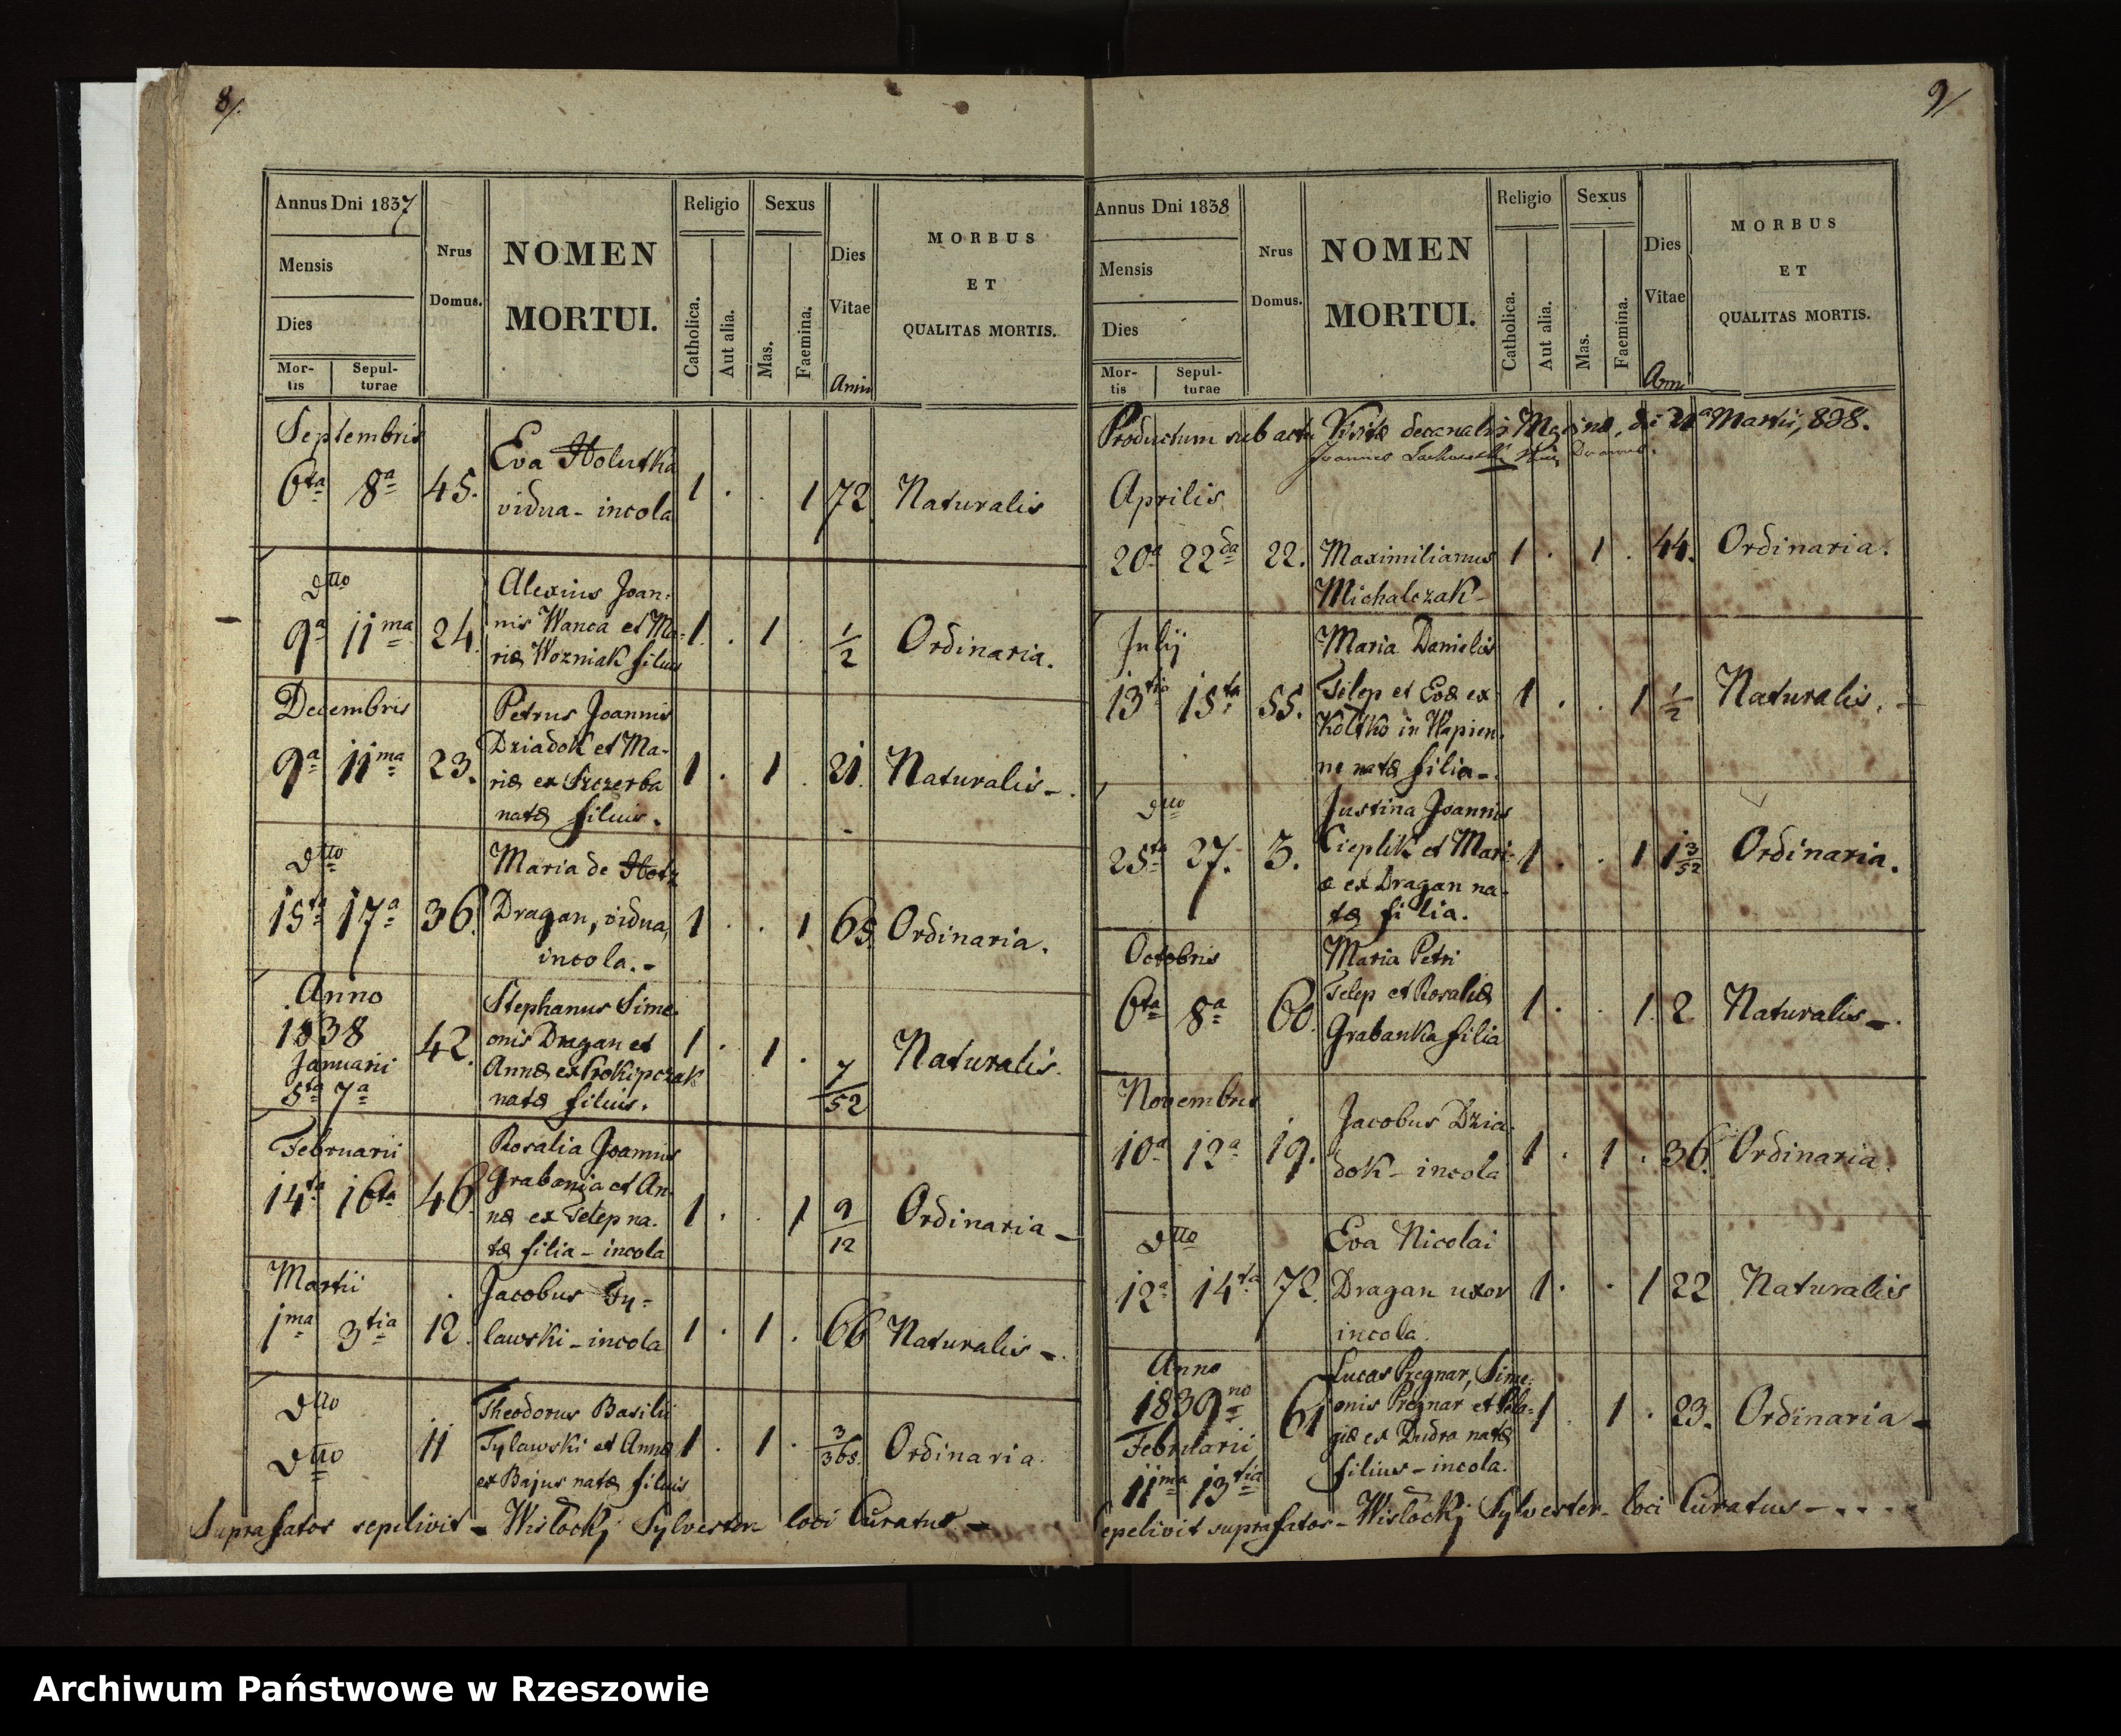 8/.
Annus Dni 1837
Mensis
Dies
Mor-
tis
Sepul-
turae
Nrus
Domus.
NOMEN
MORTUI.
Religio
Catholica.
Aut alia.
Sexus
Mas.
Faemina.
Dies
Vitae
Anni
MORBUS
ET
QUALITAS MORTIS.
Septembris
6ta 8a 45. Eva Holutka
vidua - incola 1 . . 1 72 Naturalis
dtto
9a 11ma 24. Alexius Joan:
nis Wanca et Ma-
riæ Wozniak filius 1. . 1 . 1/2 Ordinaria.
Decembris
9a 11ma 23. Petrus Joannis
Dziadok et Ma-
riæ ex Szczerba
natæ filius. 1 . 1 . 21. Naturalis -.
dtto
15ta 17a 36. Maria de
Dragan, vidua,
incola. - 1 . . 1 65 Ordinaria.
Anno
1838
Januarii
5ta 7a 42. Stephanus Sime-
onis Dragan et
Annæ ex Prokipczak
natæ filius. 1 . 1 . 7/52 Naturalis.
Februarii
14ta 16ta 46. Rosalia Joannis
Grabania et An-
næ ex Telep na-
tæ filia - incola 1 . . 1 9/12 Ordinaria -
Martii
1ma 3tia 12. Jacobus Ty-
lawski - incola 1 . 1 . 66 Naturalis -.
dtto
dtto 11 Theodorus Basilii
Tylawski et Annæ
ex Bajus natæ filius 1 . 1 . 3/365. Ordinaria.
Suprafatos sepelivit - Wisłockj Sylvester loci Curatus -
9/
Annus Dni 1838
Mensis
Dies
Mor-
tis
Sepul-
turae
Nrus
Domus.
NOMEN
MORTUI.
Religio
Catholica.
Aut alia.
Sexus
Mas.
Faemina.
Dies
Vitae
Anni
MORBUS
ET
QUALITAS MORTIS.
Productum sub actu Visitæ decanalis Martii, 838.
Joannes
Aprilis
20a 22da 22. Maximilianus
Michalczak - 1 . 1 . 44. Ordinaria.
Julij
13tia 15ta 55. Maria Danielis
Telep et Evæ ex
Koltko in Wapien-
ne natæ filia -. 1 . . 1 1/2 Naturalis. -
dtto
25ta 27. 3. Justina Joannis
Cieplik et Mari-
æ ex Dragan na-
tæ filia. 1 . . 1 1 3/52 Ordinaria.
Octobris
6ta 8a 60. Maria Petri
Telep et Rosaliæ
Grabanka filia 1 . . 1. 2 Naturalis -.
Novembris
10a 12a 19. Jacobus Dzia-
dok - incola 1 . 1 . 36. Ordinaria.
dtto
12a 14ta 72. Eva Nicolai
Dragan uxor
incola. 1 . . 1 22 Naturalis
Anno
1839no
Februarii
11ma 13tia 61 Lucas Pregnar, Sime-
onis Pregnar et Pela-
giæ ex Dudra natæ
filius - incola. 1 . 1 . 23. Ordinaria -
Sepelivit suprafatos - Wisłockj Sylvester - loci Curatus - . . . .
Archiwum Państwowe w Rzeszowie